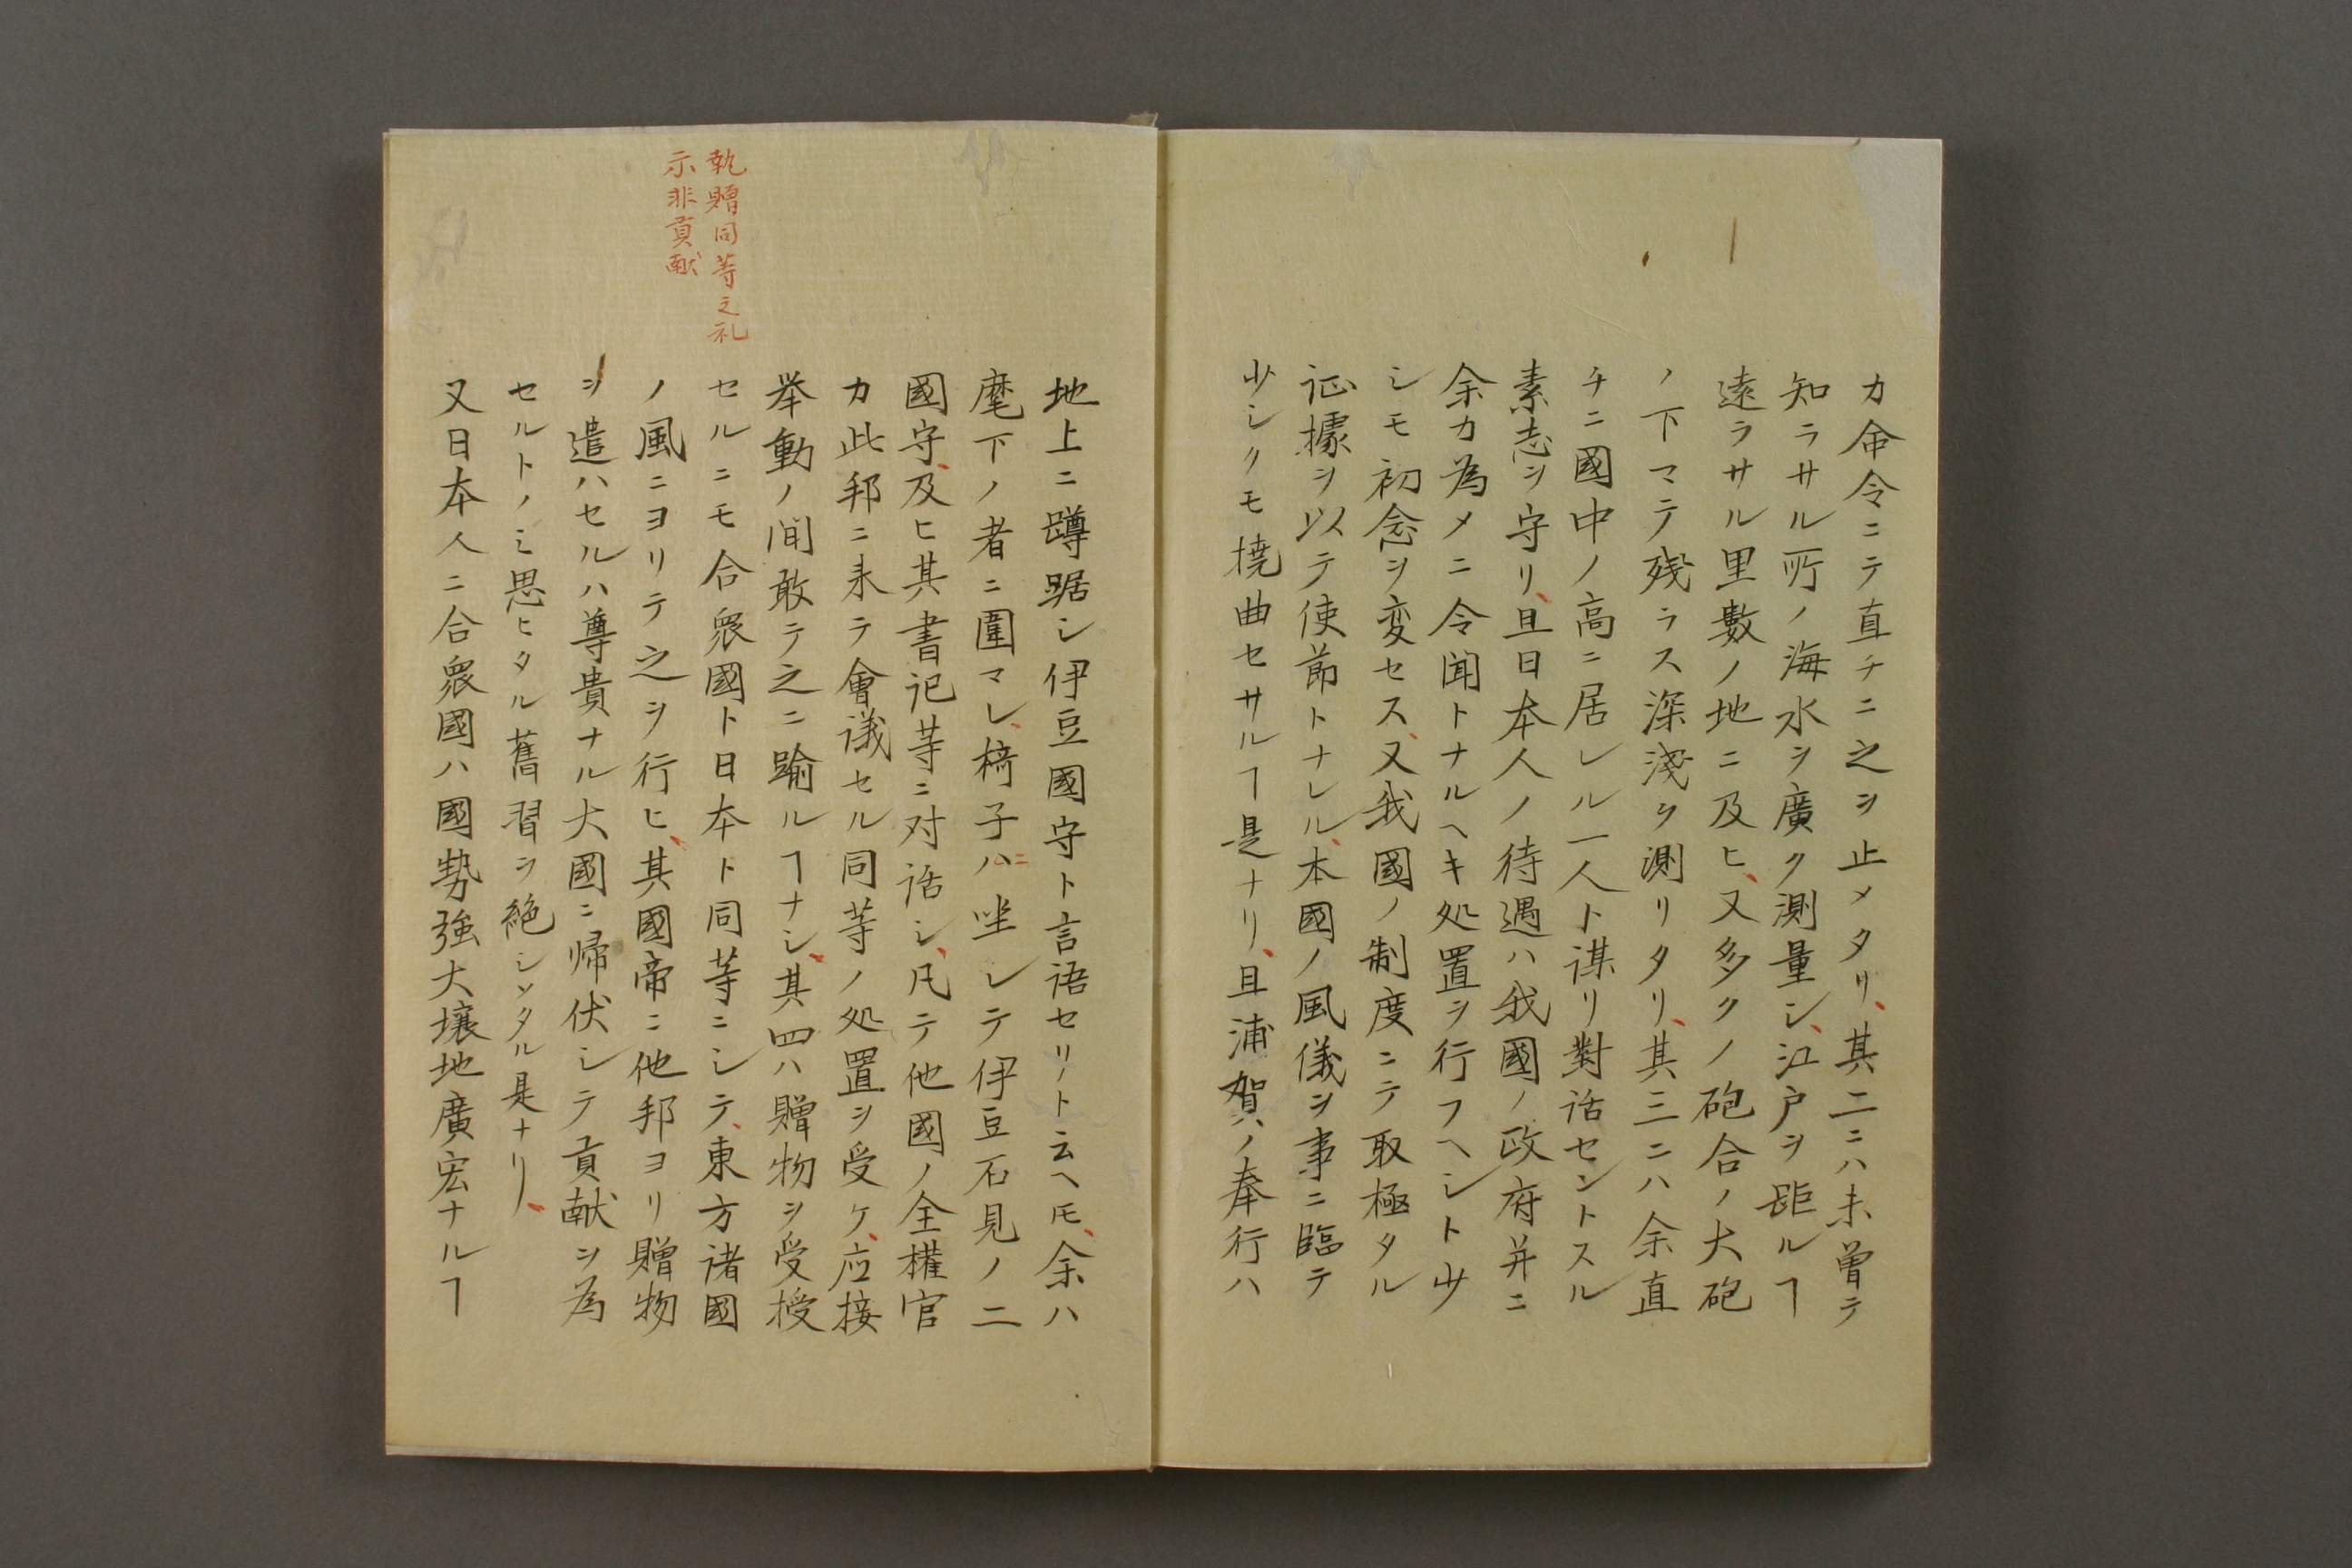 カ命令ニテ直チニ之ヲ止メタリ、其二ニハ未曽テ
知ラサル所ノ海水ヲ廣ク測量シ、江戸ヲ距ルヿ
遠ラサル里數ノ地ニ及ヒ、又多クノ砲合ノ大砲
ノ下マテ残ラス深淺ヲ測リタリ、其三ニハ余直
チニ國中ノ高ニ居レル一人ト謀リ對話セントスル
素志ヲ守リ、且日本人ノ待遇ハ我國ノ政府并ニ
余カ為メニ令聞トナルヘキ処置ヲ行フヘシト少
シモ初念ヲ変セス、又我國ノ制度ニテ取極タル
証據ヲ以テ使節トナレル、本國ノ風儀ヲ事ニ臨テ
少シクモ撓曲セサルヿ是ナリ、且浦賀ノ奉行ハ
地上ニ蹲踞シ伊豆國守ト言語セリト云ヘ𪜈、余ハ
麾下ノ者ニ圍マレ、椅子ハニ坐シテ伊豆石見ノ二
國守、及ヒ其書记等ニ对话シ、凡テ他國ノ全權官
カ此邦ニ来テ會議セル同等ノ処置ヲ受ケ、应接
举動ノ间敢テ之ニ踰ルヿナシ、其四ハ贈物ヲ受授
セルニモ合衆國ト日本ト同等ニシテ、東方诸國
ノ風ニヨリテ之ヲ行ヒ、其國帝ニ他邦ヨリ贈物
ヲ遣ハセルハ尊貴ナル大國ニ帰伏シテ貢献ヲ為
セルトノミ思ヒタル舊習ヲ絶シタル是ナリ、
又日本人ニ合衆國ハ國勢強大壌地廣宏ナルヿ
執贈同等之礼
示非貢献